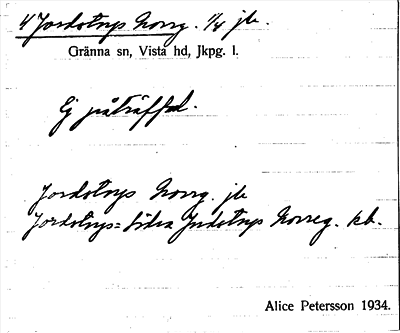 4 Jordstorps Norrg. 1/4 jb.
Gränna sn, Vista hd, Jkpg. l.
Ej påträffad.
Jordstorps Norrg. jb
Jordstorps= Södra Jordstorps Norreg. kb.
Alice Petersson 1934.